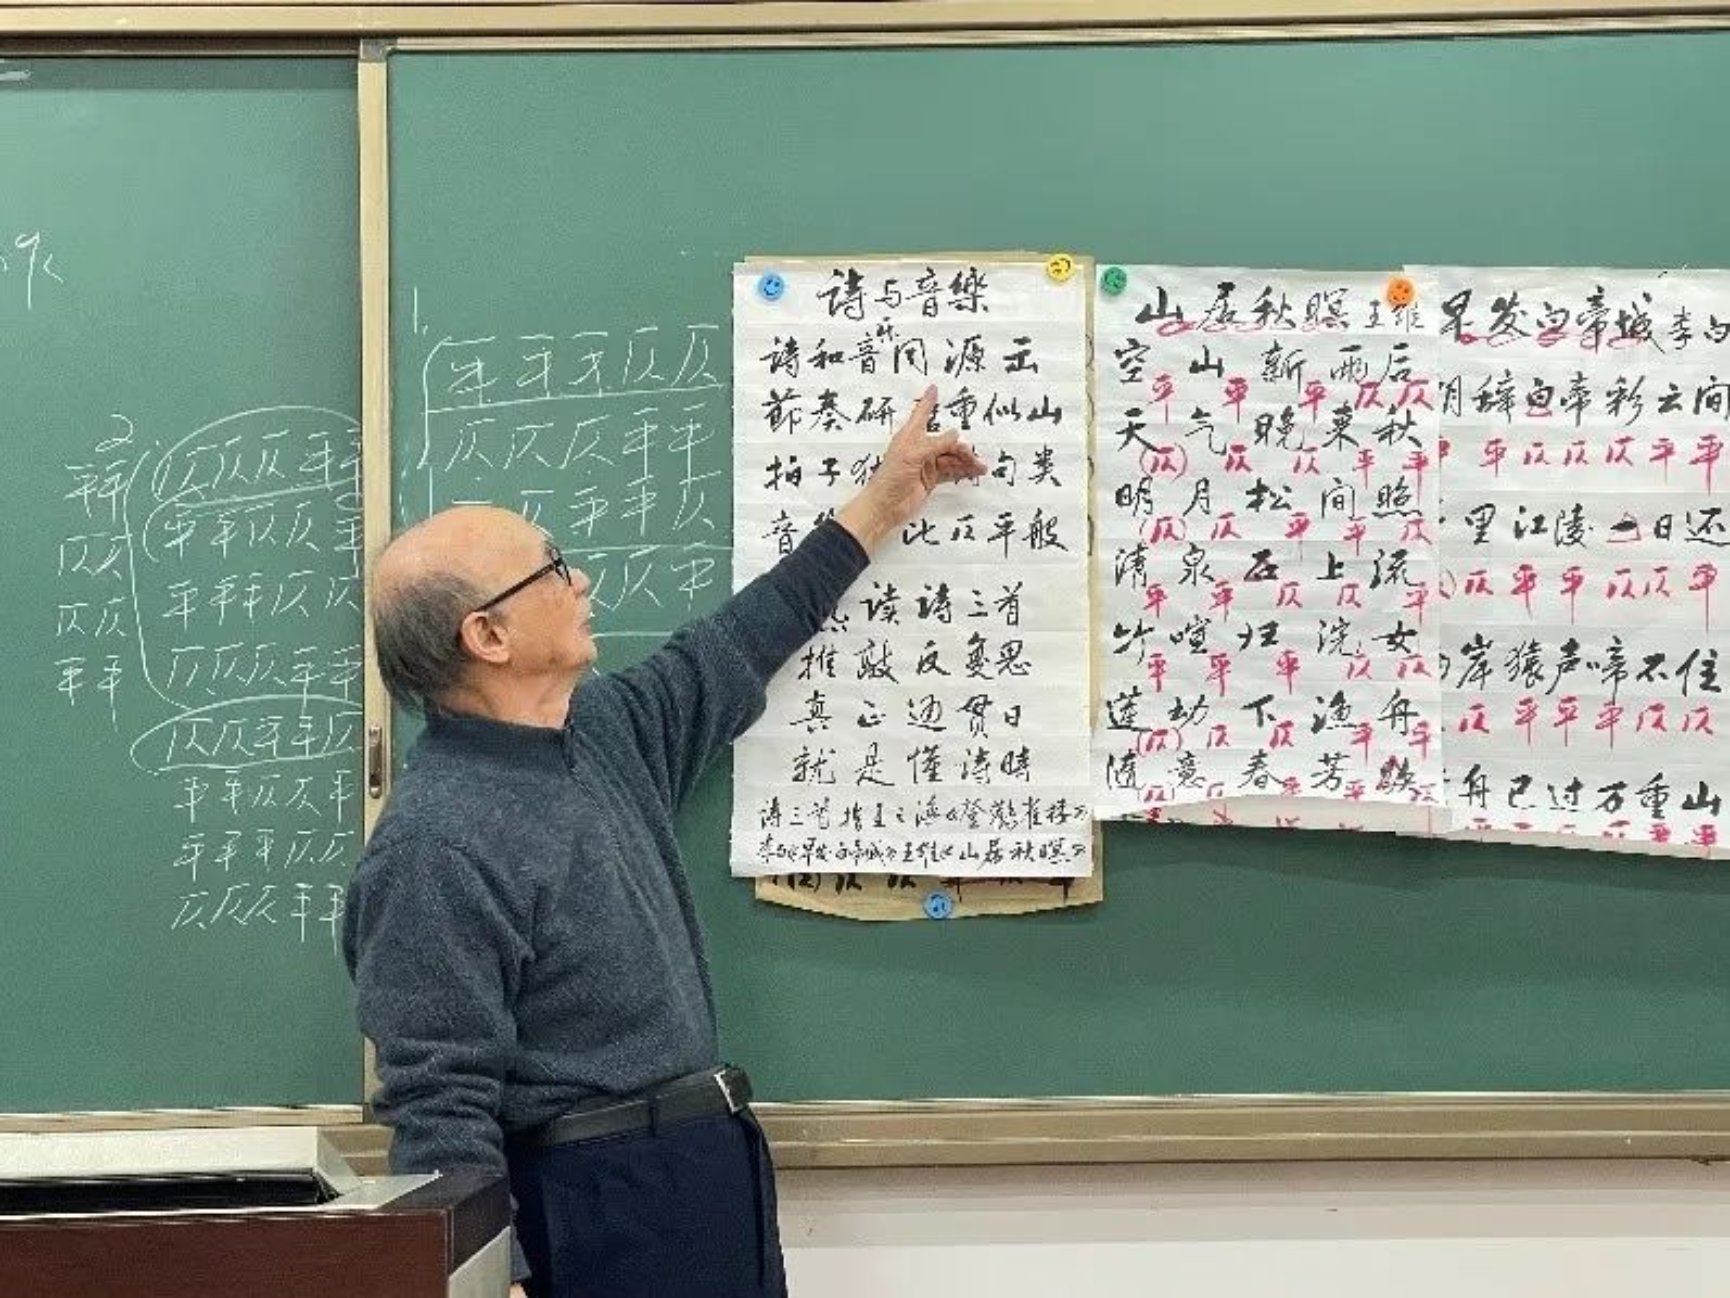 平平
仄仄
仄仄
平平
2.
仄仄仄平平
平平仄仄平
平平平仄仄
仄仄仄平平
仄仄平平仄
平平仄仄平
平平平仄仄
仄仄仄平平
1.
平平平仄仄
仄仄仄平平
仄平平仄
仄仄平
诗与音樂
诗和音乐同源出
節奏研重似山
拍子句类
音比仄平般
读诗三首
推敲反复思
真正边贯日
就是懂诗時
诗三首指王之涣《登鹳雀楼》
李白《早发白帝城》王维《山居秋暝》
山居秋暝 王维
空山新雨后
平平平仄仄
天气晚来秋
(仄)仄仄平平
明月松间照
(仄)仄平平仄
清泉石上流
平平仄仄平
竹喧归浣女
平平平仄仄
莲动下渔舟
(仄)仄仄平平
随意春芳歇
(仄)仄平平仄
早发白帝城 李白
辞白帝彩云间
平仄仄仄平平
里江陵一日还
仄平平仄仄平
岸猿声啼不住
仄平平平仄仄
舟已过万重山